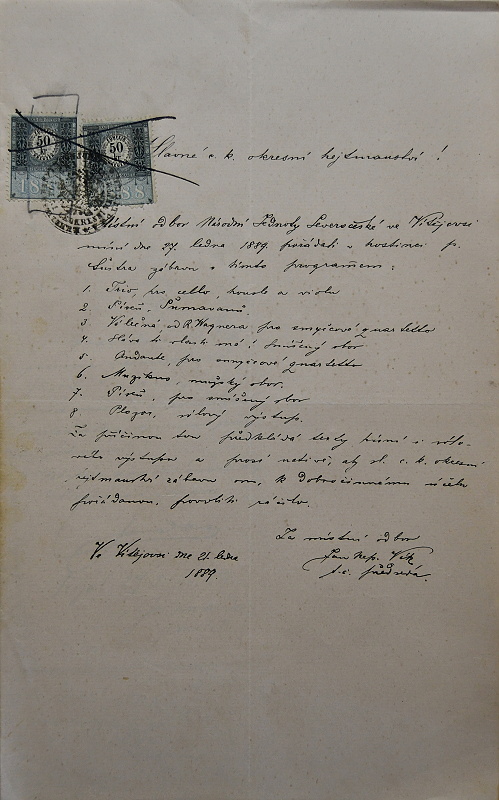 50 50
18 88
Slavné c. k. okresní hejtmanství!
Místní odbor Národní Jednoty Severočeské ve
míní dne 27. ledna 1889. pořádati v hostinci p.
Šustra zábavu s tímto programem:
1. Trio, pro cello, housle a violu
2. Píseň, Šumavanů.
3. Válečná, od R. Wagnera pro smyčcové quartetto
4. Sláva ti vlasti má! Smíšený sbor
5. Andante, pro smyčcové quartetto
6. mužský sbor.
7. Píseň, pro smíšený sbor
8. sólový výstup.
Za příčinou tou předkládá texty písní i sólo-
vého výstupu a prosí uctivě, aby sl. c. k. okresní
hejtmanství zábavu onu, k dobročinnému účelu
pořádanou, povoliti ráčilo.
Za místní odbor
Ve dne 21. ledna
Jan Nep.
1889.
t. č. předseda.